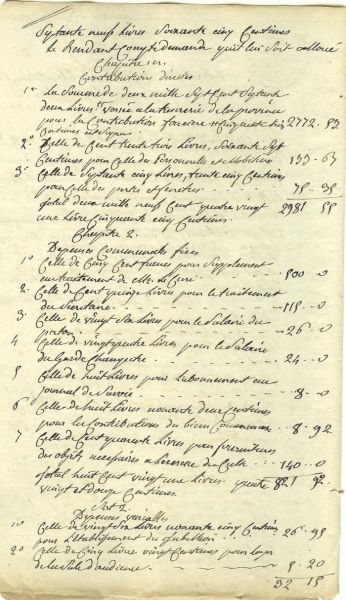 Septante neuf Livres Soixante cinq Centimes
Le Rendant Compte demande qu'il lui Soit alloué
Chapitre 1er.
Contributions directes
1° La Somme de deux mille Sept Cent Septante
deux Livres versée a la tresorerie de la province
pour la Contribution fonciere et Cinquante trois
Centimes 2772 - 53
2° Celle de Cent trente trois Livres, Soixante Sept
Centimes pour Celle des Personnelle et Mobiliere 133 - 67
3° Celle de Septante Cinq Livres, trente Cinq Centimes
pour Celle des portes et fenetres 75 - 35
total deux mille neuf Cent quatre vingt 2981 55
une Livre Cinquante cinq Centimes.
Chapitre 2.
Depenses Communales fixes
1° Celle de Cinq Cent Livres pour Supplement
au traitement de Mr. Le Curé 500 - 0
2 Celle de Cent quinze Livres pour le traitement
du Secretaire 115 - 0
3 Celle de vingt Six Livres pour le Salaire du
pieton 26 - 0
4 Celle de vingt quatre Livres pour le Salaire
du Garde Champetre 24 - 0
5 Celle de huit Livres pour L'abonnement au
journal de Savoie 8 - 0
6 Celle de huit Livres nonante deux Centimes
pour les Contributions des biens Communaux 8 - 92
7 Celle de Cent quarante Livres pour fournitures
des objets necessaires a l'exercice du Culte 140 - 0
total huit Cent vingt une Livres 821 92
vingt et douze Centimes.
Part. 2
Depenses variables
1° Celle de vingt Six Livres nonante cinq Centimes
pour L'Etablissement du 26 - 95
2° Celle de Cinq Livres vingt Centimes pour
de la Sale d'audience 5 - 20
32 15